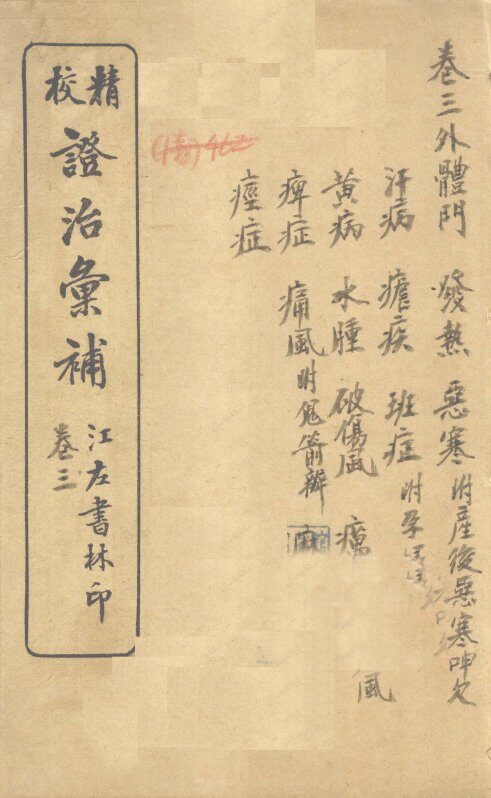 卷三外體門 發熱 惡寒 附產後惡寒呻欠
汗病 瘧疾 班症 附孕
黃病 水腫 破傷風 癘風
痺症 痛風 附鬼箭辨 麻
痙症
精校
證治彙補
江左書林印
卷三